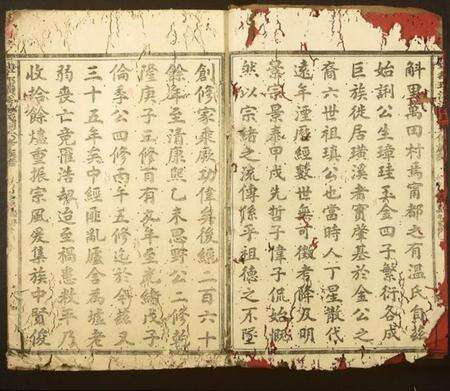 斛里萬田村為甯都之有溫氏自茲
始訓公生璋珪玉金四子繁衍各成
巨族徙居璜溪者實肇基於金公之
裔六世祖瑱公也當時人丁星散代
遠年湮歷經數世無可徵者降及明
景宗景泰甲戌先哲子偉子侃始慨
然以宗緒之流傳係乎祖德之不墜
創修家乘厥功偉矣後經二百六十
餘年至清康熙乙未思野公二修乾
隆庚子三修首有友年至光緒戊子
倫季公四修丙午五修迄於今茲又
三十五年矣中經匪亂廬舍為墟老
弱喪亡竟罹浩劫迨至禍患敉平乃
收拾餘燼重振宗風爰集族中賢俊